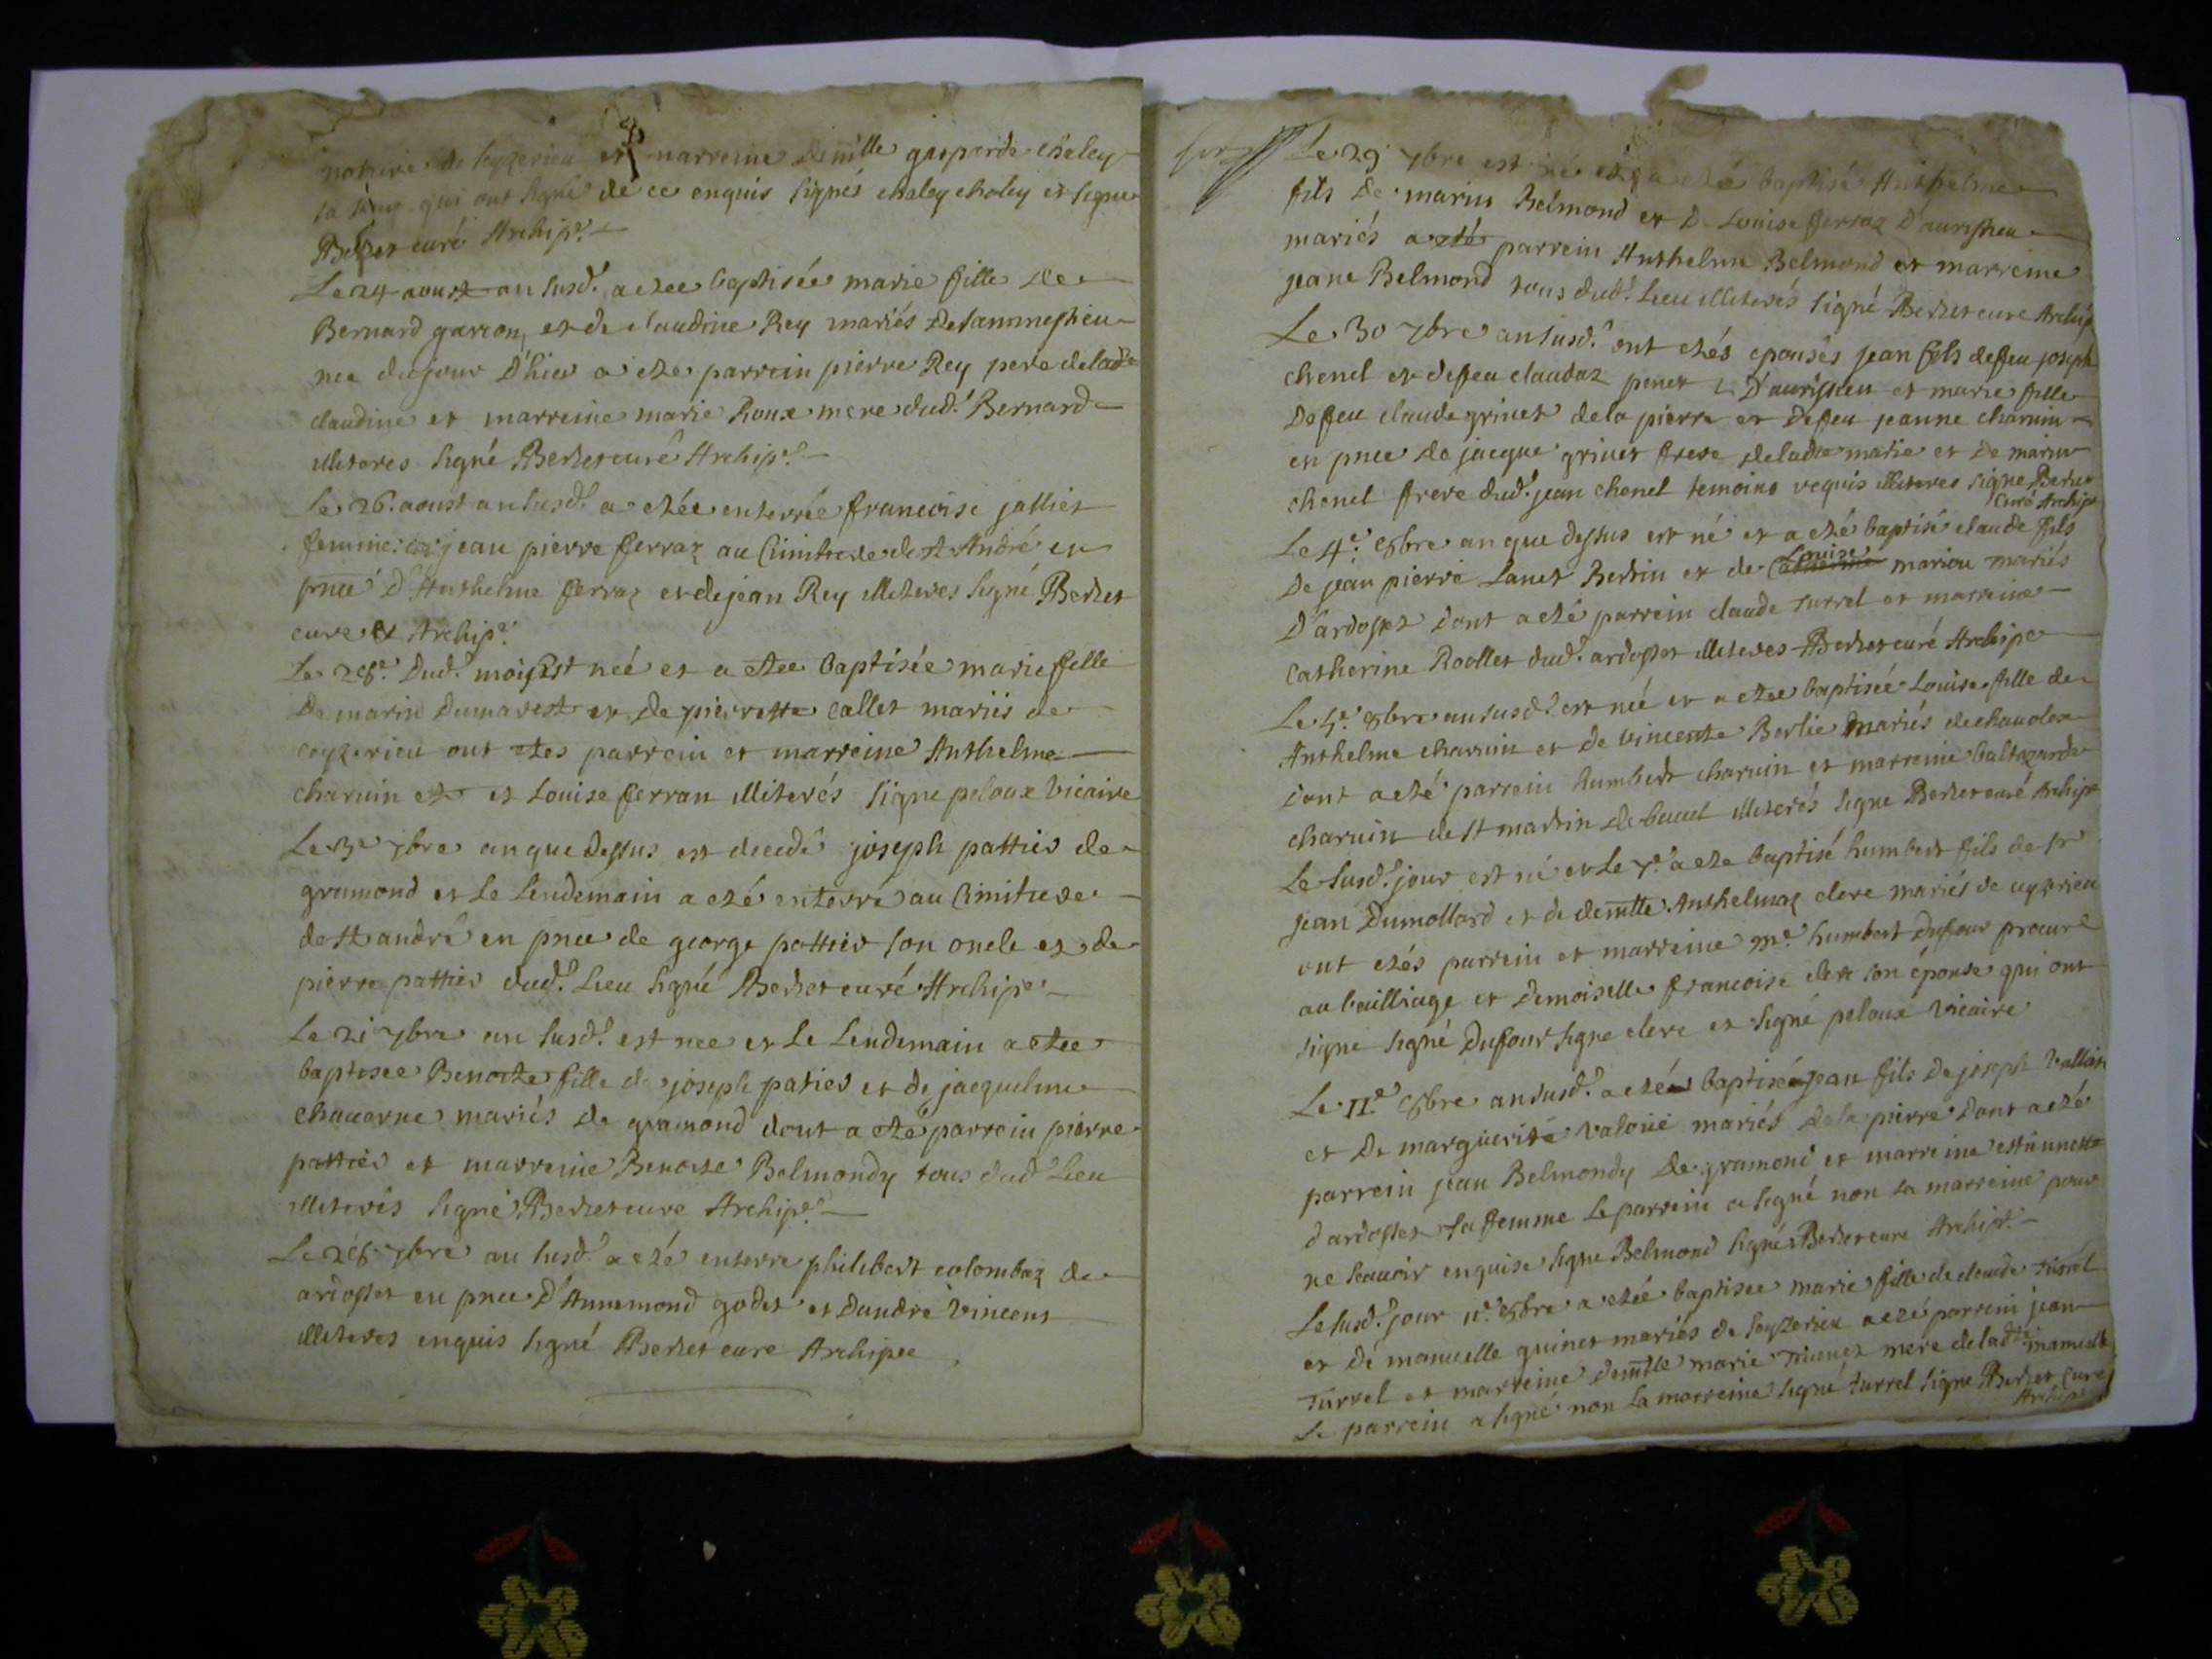 notaire de Ceyzerieu et marreine demlle gasparde chaley
sa sœur qui ont signé de ce enquis signés chaley chaley et signe
Berzet curé Archipe.
Le 24 aoust an susd. a etee baptisée marie fille de
Bernard garcon, et de claudine Rey mariés de
née du jour D'hier a ete parrein pierre Rey pere de ladte
claudine et marreine marie Roux mere dud. Bernard
illiteres signé Berzet curé Archipe.
Le 26. aoust an susd. a etée enterrée francoise jallier
femme jean pierre ferraz au Cimitiere de St André en
pnce D'Anthelme ferraz et de jean Rey illiteres signé Berzet
curé & Archipe.
Le 28e. Dud. mois Est neé et a etee baptisée marie fille
De marin Dumarest et De pierrette callet mariés de
ceyzerieu ont etes parrein et marreine Anthelme
charuin et et Louise ferran illiterés signe peloux vicaire
Le 3e 7bre an que Dessus est decedé joseph pattier de
gramond et Le Lendemain a eté enterré au Cimitiere
de St andré en pnce de george pattier son oncle et de
pierre pattier dud. Lieu signé Berzet curé Archipe.
Le 21 7bre an susd. est nee et Le Lendemain a etee
baptisee Benoite fille de joseph patier et de jacqueline
chavarne mariés de gramond dont a eté parrein pierre
pattier et marreine Benoite Belmondy tous dud Lieu
illiterés signé Berzet curé Archipe.
Le 28 7bre an susd. a eté enterre philibert colombaz de
ardosset en pnce D'Annemond godet et Dandré vincent
illiteres enquis signé Berzet cure Archipe
Le 29 7bre est né et a eté baptisé Anthelme
fils De marin Belmond et D Louise ferraz D'aurissieu
mariés a eté parrein Anthelme Belmond et marreine
jeane Belmond tous dud. Lieu illiterés signé Berzet cure Archip
Le 30 7bre an susd. ont etés epousés jean fils de feu joseph
chenel et de feu claudaz penet D'aurissieu et marie fille
De feu claude grinet de la pierre et De feu jeanne charuin
en pnce de jacque grinet frere de ladte marie et De marin
chenel frere dud. jean chenel temoins requis illiteres signe Berzet
Curé Archip
Le 4e. 8bre an que dessus est né et a eté baptisé claude fils
De jean pierre Lanet Bertin et de Catherine Louise mariou mariés
D'ardosset Dont a eté parrein claude turrel et marreine
Catherine Roollet dud. ardosset illiteres Berzet curé Archipe
Le 5e. 8bre an susd. est neé et a etee baptisée Louise fille de
Anthelme charuin et de vincente Berlie mariés de chavoley
Dont a eté parrein humbert charuin et marreine baltazarde
charuin de St martin de bavel illiterés signe Berzet curé Archipe
Le susd. jour est né et Le 7e. a ete baptisé humbert fils de Sr
jean Dumollard et de demlle Anthelmaz clerc mariés de ceyzrieu
ont etés parrein et marreine me. humbert Dufour procur
au bailliage et Demoiselle francoise clerc son épouse qui ont
signe signé Dufour signe clerc et signé peloux vicaire
Le 11e 8bre an susd. a eté baptisé jean fils De joseph vallin
et De marguerite valoué mariés de la pierre Dont a eté
parrein jean Belmondy de gramond et marreine estiennette
d'ardosset sa femme Le parrein a signé non la marreine pour
ne scavoir enquise signe Belmond signé Berzet cure Archipe.
Le susd. jour 11e. 8bre a etée baptisee marie fille de claude turrel
et de manuelle guinet mariés de Ceyzerieu a eté parrein jean
turrel et marreine demlle marie mere de ladte manuelle
Le parrein a signé non la marreine signé turrel signe Berzet Curé
Archipe